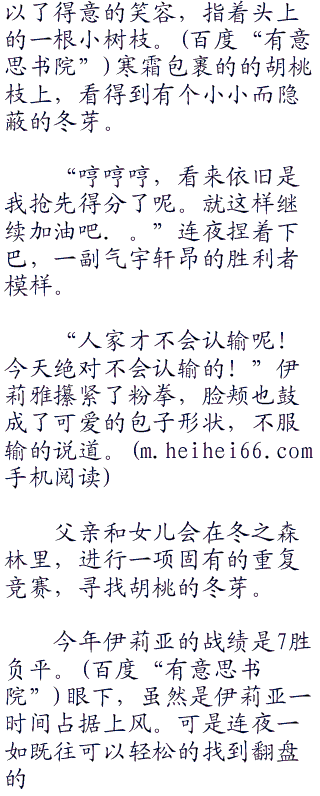 以了得意的笑容，指着头上
的一根小树枝。(百度“有意
思书院”)寒霜包裹的的胡桃
枝上，看得到有个小小而隐
蔽的冬芽。
“哼哼哼，看来依旧是
我抢先得分了呢。就这样继
续加油吧．。”连夜捏着下
巴，一副气宇轩昂的胜利者
模样。
“人家才不会认输呢！
今天绝对不会认输的！”伊
莉雅攥紧了粉拳，脸颊也鼓
成了可爱的包子形状，不服
输的说道。(m.heihei66.com
手机阅读)
父亲和女儿会在冬之森
林里，进行一项固有的重复
竞赛，寻找胡桃的冬芽。
今年伊莉亚的战绩是7胜
负平。(百度“有意思书
院”)眼下，虽然是伊莉亚一
时间占据上风。可是连夜一
如既往可以轻松的找到翻盘
的